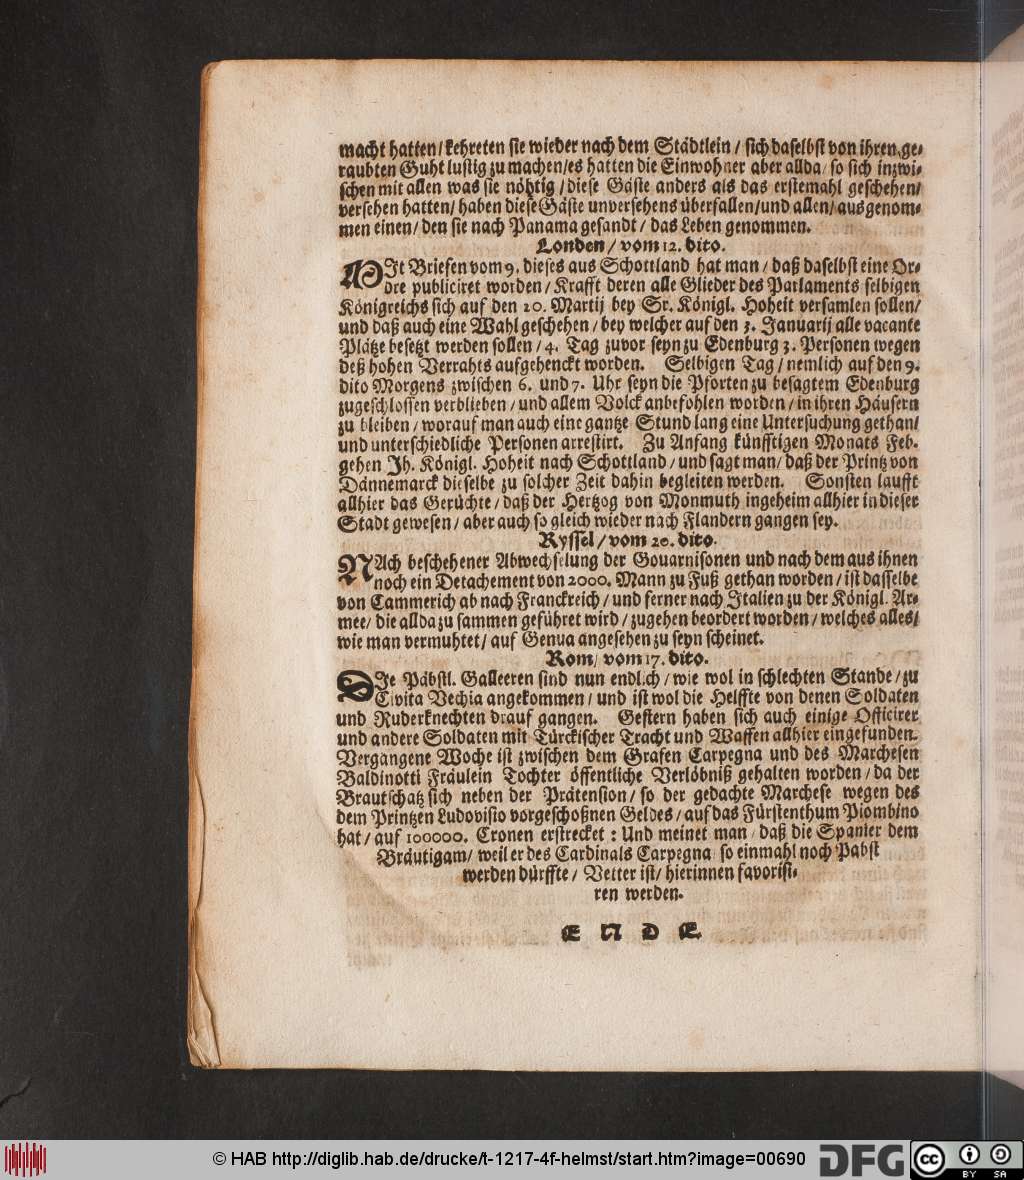 macht hatten / kehreten sie wieder nach dem Städtlein / sich daselbst von ihren ge-
raubten Guht lustig zu machen / es hatten die Einwohner aber allda / so sich inzwi-
schen mit allen was sie nöhtig / diese Gäste anders als das erstemahl geschehen /
versehen hatten / haben diese Gäste unversehens überfallen / und allen / ausgenom-
men einen / den sie nach Panama gesandt / das Leben genommen.
Londen / vom 12. dito.
MIt Briefen vom 9. dieses aus Schottland hat man / daß daselbst eine Or-
dre publiciret worden / Krafft deren alle Glieder des Parlaments selbigen
Königreichs sich auf den 20. Martij bey Sr. Königl. Hoheit versamlen sollen /
und daß auch eine Wahl geschehen / bey welcher auf den 3. Januarij alle vacante
Plätze besetzt werden sollen / 4. Tag zuvor seyn zu Edenburg 3. Personen wegen
deß hohen Verrahts aufgehenckt worden. Selbigen Tag / nemlich auf den 9.
dito Morgens zwischen 6. und 7. Uhr seyn die Pforten zu besagtem Edenburg
zugeschlossen verblieben / und allem Volck anbefohlen worden / in ihren Häusern
zu bleiben / worauf man auch eine gantze Stund lang eine Untersuchung gethan /
und unterschiedliche Personen arrestirt. Zu Anfang künfftigen Monats Feb.
gehen Jh. Königl. Hoheit nach Schottland / und sagt man / daß der Printz von
Dännemarck dieselbe zu solcher Zeit dahin begleiten werden. Sonsten laufft
allhier das Gerüchte / daß der Hertzog von Monmuth ingeheim allhier in dieser
Stadt gewesen / aber auch so gleich wieder nach Flandern gangen sey.
Ryssel / vom 20. dito.
NAch beschehener Abwechselung der Gouarnisonen und nach dem aus ihnen
noch ein Detachement von 2000. Mann zu Fuß gethan worden / ist dasselbe
von Cammerich ab nach Franckreich / und ferner nach Italien zu der Königl. Ar-
mee / die allda zu sammen geführet wird / zugehen beordert worden / welches alles /
wie man vermuhtet / auf Genua angesehen zu seyn scheinet.
Rom / vom 17. dito.
DIe Päbstl. Galleeren sind nun endlich / wie wol in schlechten Stande / zu
Civita Vechia angekommen / und ist wol die Helffte von denen Soldaten
und Ruderknechten drauf gangen. Gestern haben sich auch einige Officirer
und andere Soldaten mit Türckischer Tracht und Waffen allhier eingefunden.
Vergangene Woche ist zwischen dem Grafen Carpegna und des Marchesen
Baldinotti Fräulein Tochter öffentliche Verlöbniß gehalten worden / da der
Brautschatz sich neben der Prätension / so der gedachte Marchese wegen des
dem Printzen Ludovisio vorgeschoßnen Geldes / auf das Fürstenthum Piombino
hat / auf 100000. Cronen erstrecket : Und meinet man / daß die Spanier dem
Bräutigam / weil er des Cardinals Carpegna / so einmahl noch Pabst
werden dürffte / Vetter ist / hierinnen favorisi-
ren werden.
E N D E
© HAB http://diglib.hab.de/drucke/t-1217-4f-helmst/start.htm?image=00690 DFG cc BY SA